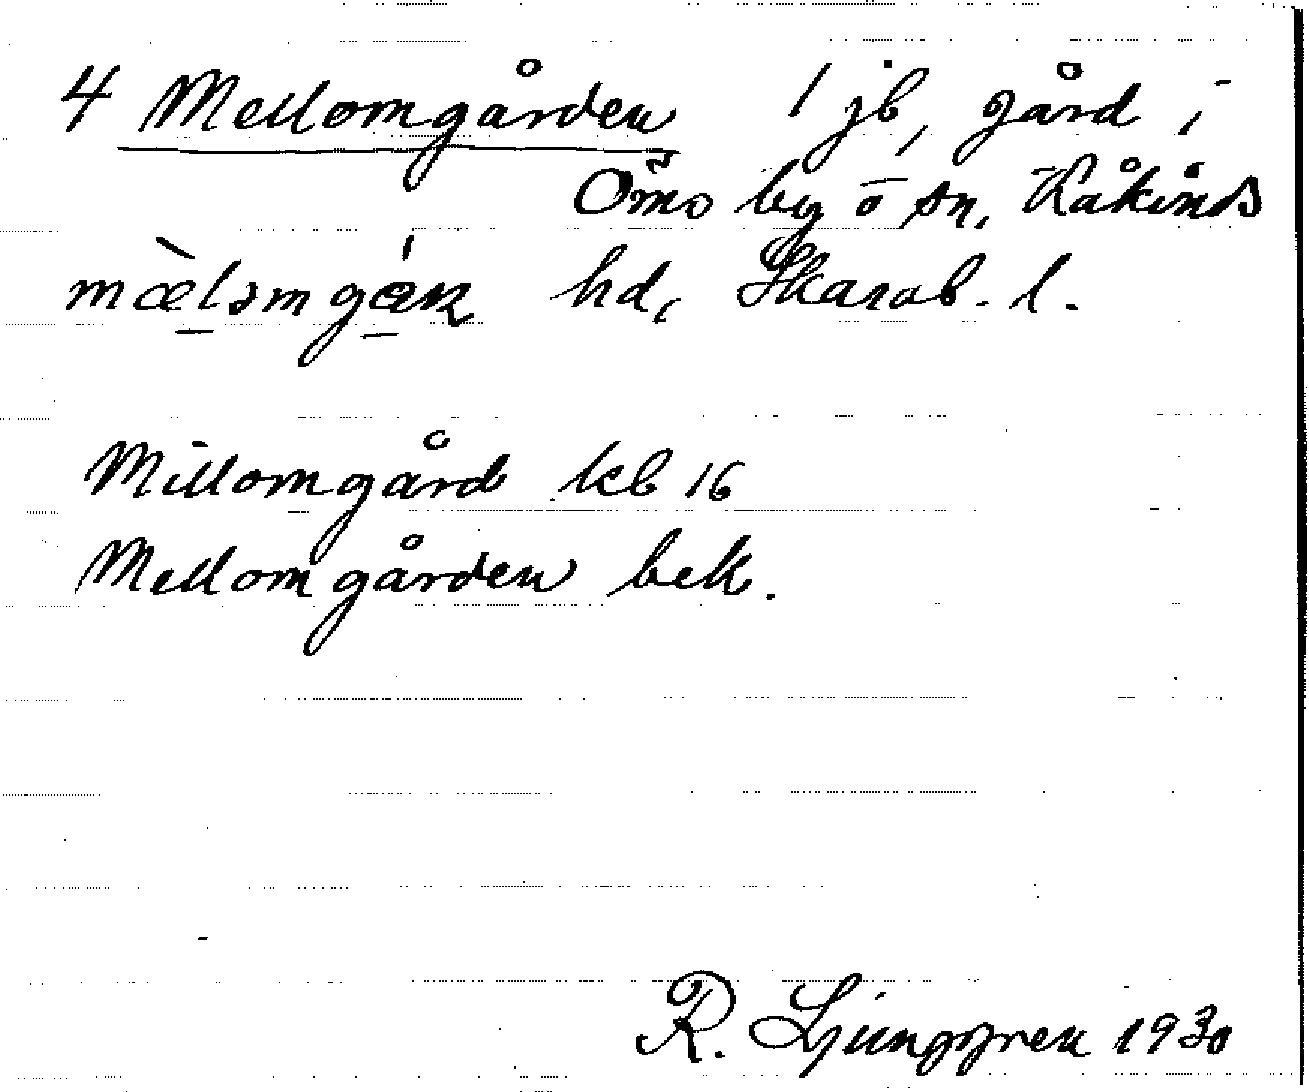 4 Mellomgården 1 jb, gård i
Ömo by o sn, Kåkinds
mæ̀ləmgɶ́ɳ hd, Skarab. l.
Millomgård kb 16
Mellomgården bek.
R. Ljunggren 1930